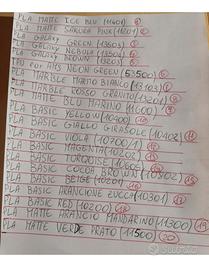 PLA MATTE ICE BLU (11601) 1
PLA MATTE SAKURA PINK (11201) 2
PLA GALAXY GREEN (13503) 3
PLA GALAXY NEBULA (13504) 4
PLA GALAXY BROWN (13203) 5
TPU FOR AMS NEON GREEN (53500) 6
PLA MARBLE MARMO BIANCO (13103) 7
PLA MARBLE ROSSO GRANITO (13201) 8
PLA MATTE BLU MARINO (11600) 9
PLA BASIC YELLOW (10400) 10
PLA BASIC GIALLO GIRASOLE (10402) 11
PLA BASIC VIOLA (10700/1) 12
PLA BASIC MAGENTA (10202) 13
PLA BASIC TURQOISE (10605) 14
PLA BASIC COCOA BROWN (10802) 15
PLA BASIC BEIGE (10201) 16
PLA BASIC ARANCIONE ZUCCA (10301) 17
PLA BASIC RED (10200) 18
PLA MATTE ARANCIO MANDARINO (11300) 19
PLA MATTE VERDE PRATO (11500) 20